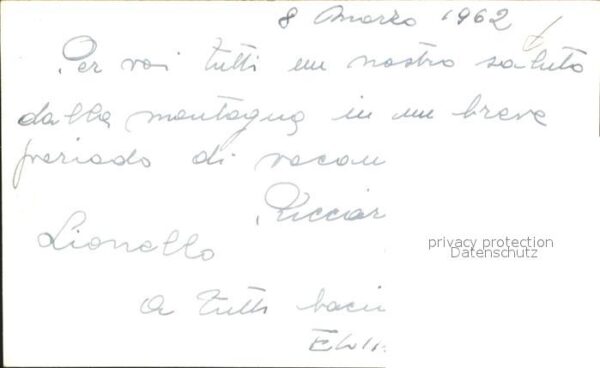 8 Marzo 1962
Per voi tutti un nostro saluto
dalla montagna in un breve
periodo di vacan
Riccar
Lionello
privacy protection
Datenschutz
a tutti baci